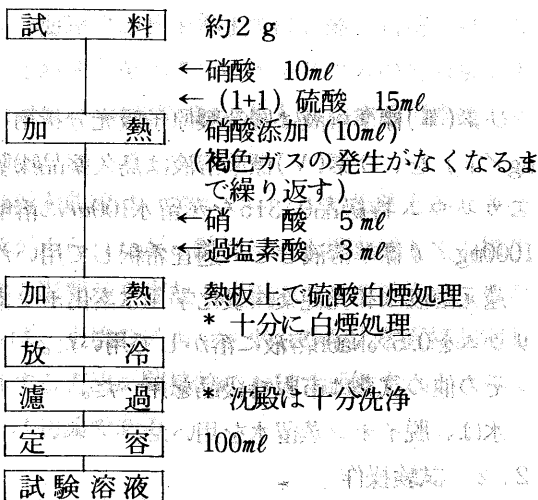 試料 約2 g
←硝酸 10ml
←(1+1) 硫酸 15ml
加熱 硝酸添加 (10ml)
(褐色ガスの発生がなくなるま
で繰り返す)
←硝酸 5 ml
←過塩素酸 3 ml
加熱 熱板上で硫酸白煙処理
* 十分に白煙処理
放冷
濾過 * 沈殿は十分洗浄
定容 100ml
試験溶液